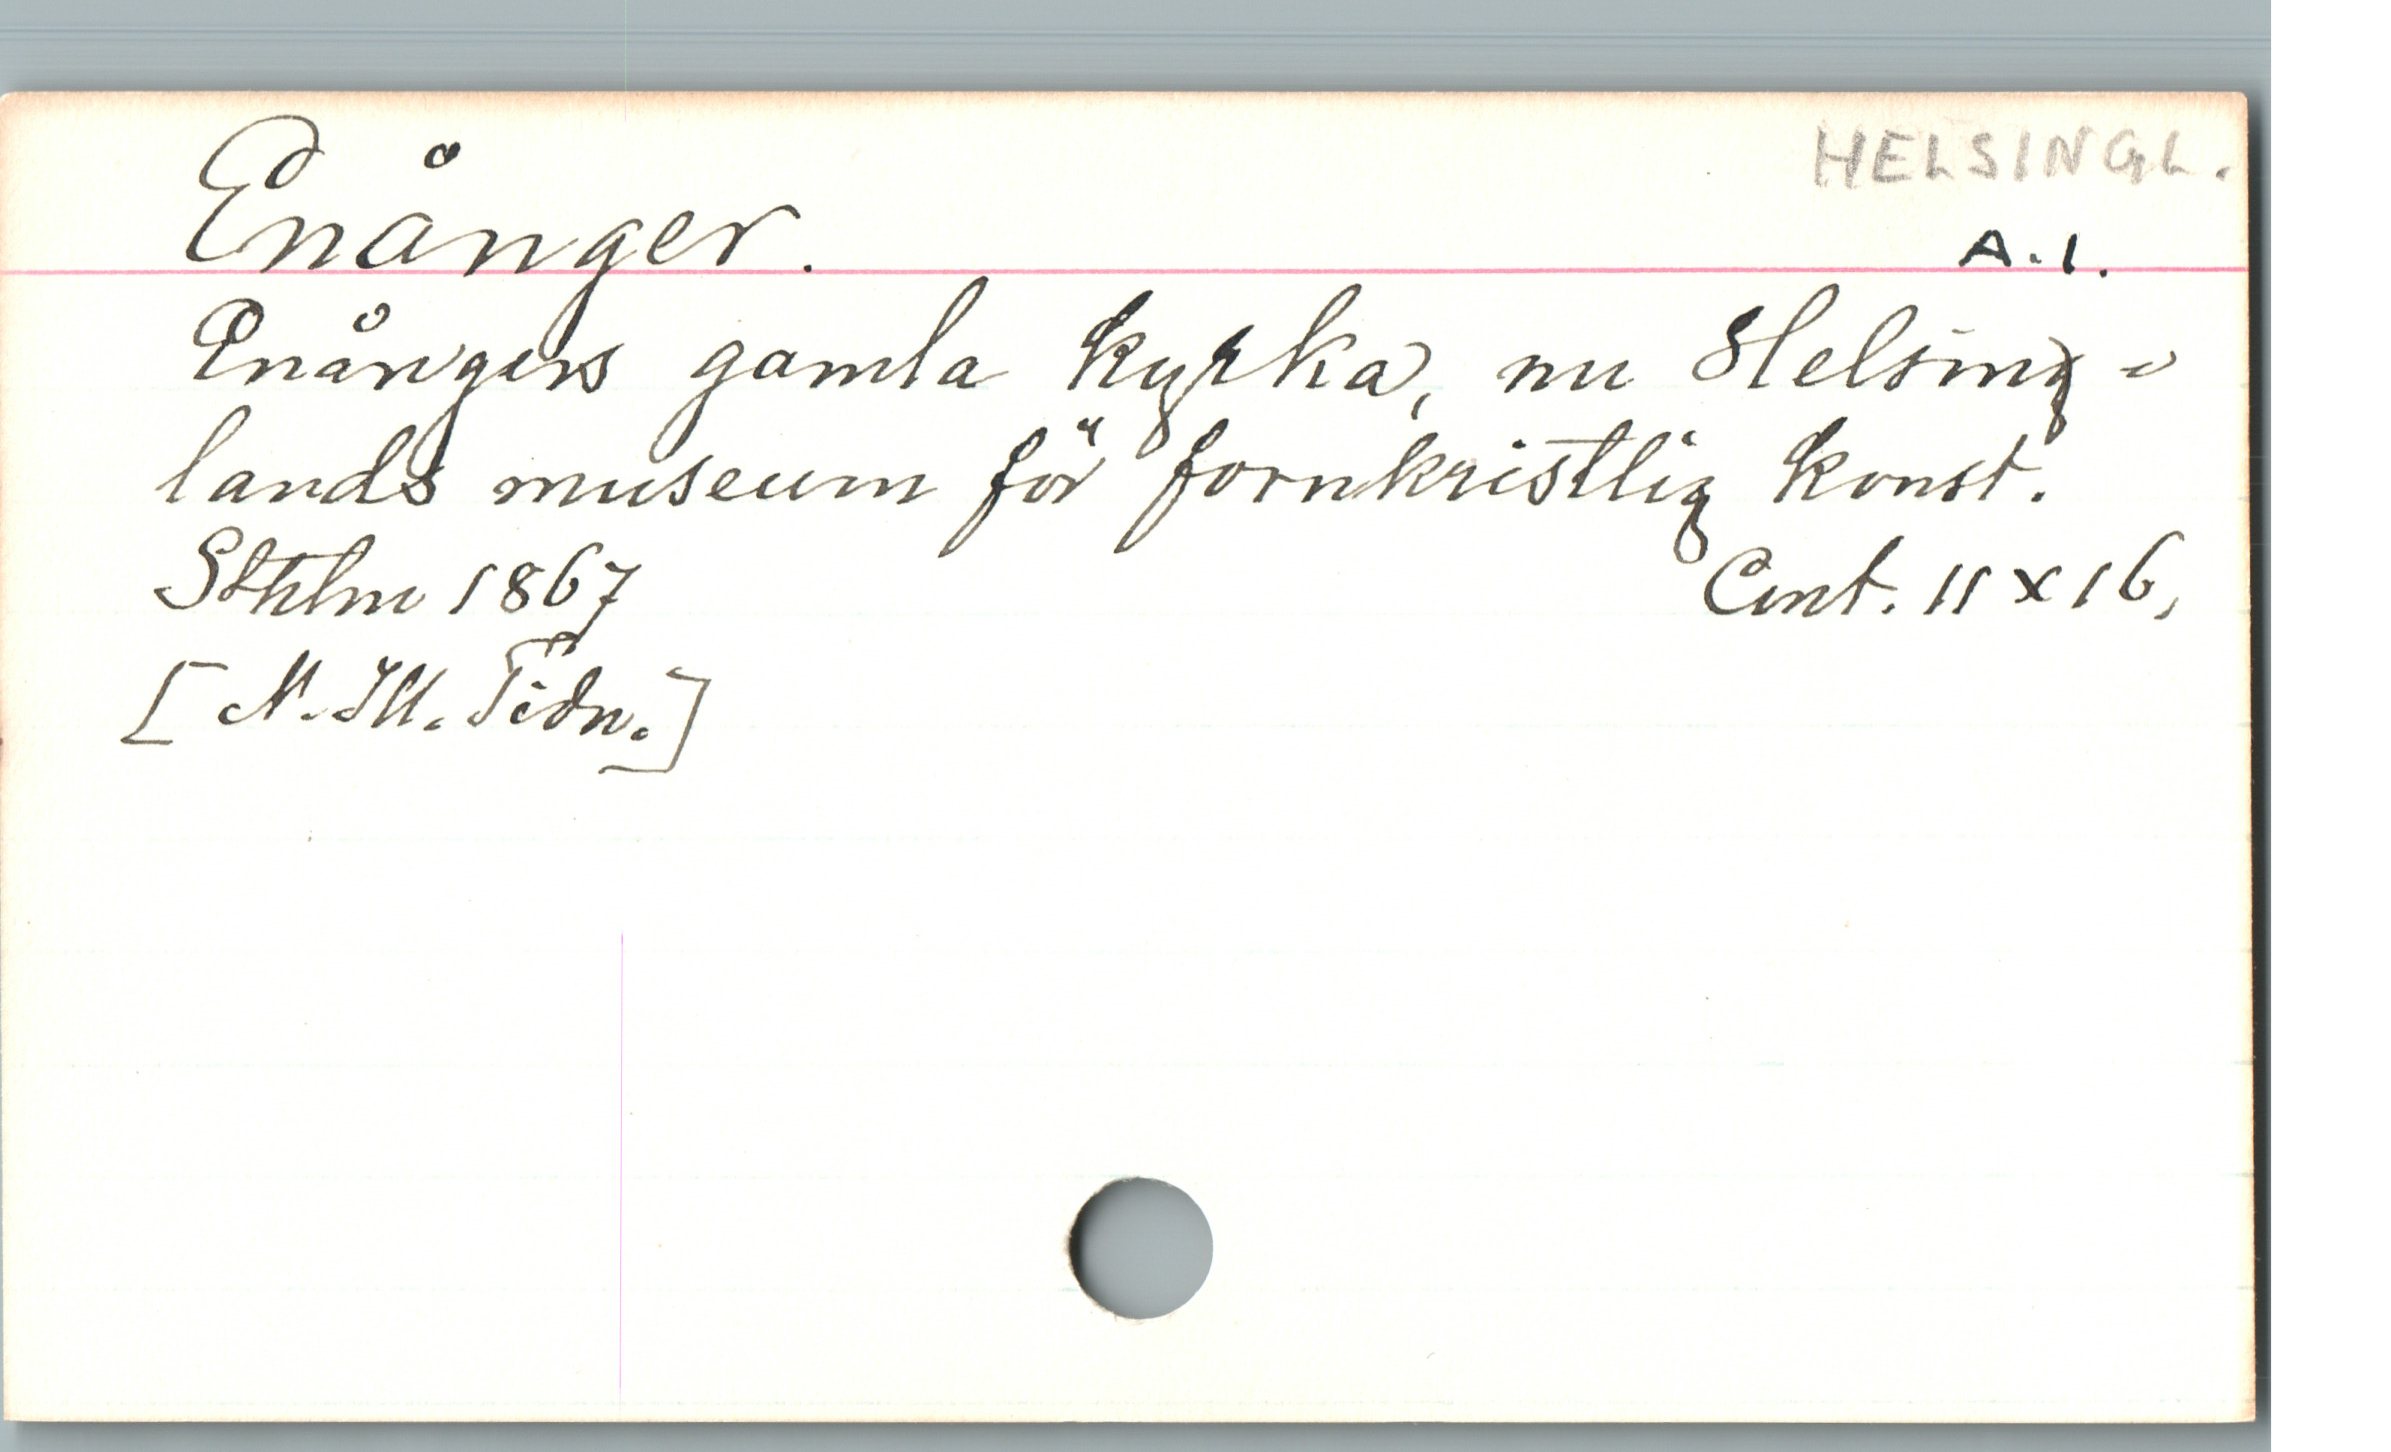 HELSINGL.
Enånger.
A.1.
Enångers gamla kyrka, nu Helsing=
lands museum för fornkristlig konst.
Sthlm 1867
Cent. 11 x 16,
[N. Ill. Tidn.]